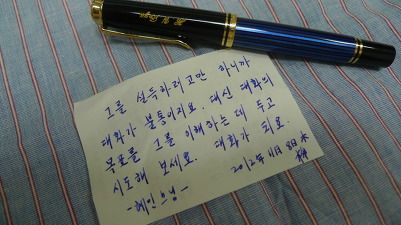 그를 설득하려고만 하니까
대화가 불통이지요. 대신 대화의
목표를 그를 이해하는 데 두고
시도해 보세요. 대화가 되요.
-혜민 스님-
2012年 11月 8日 木